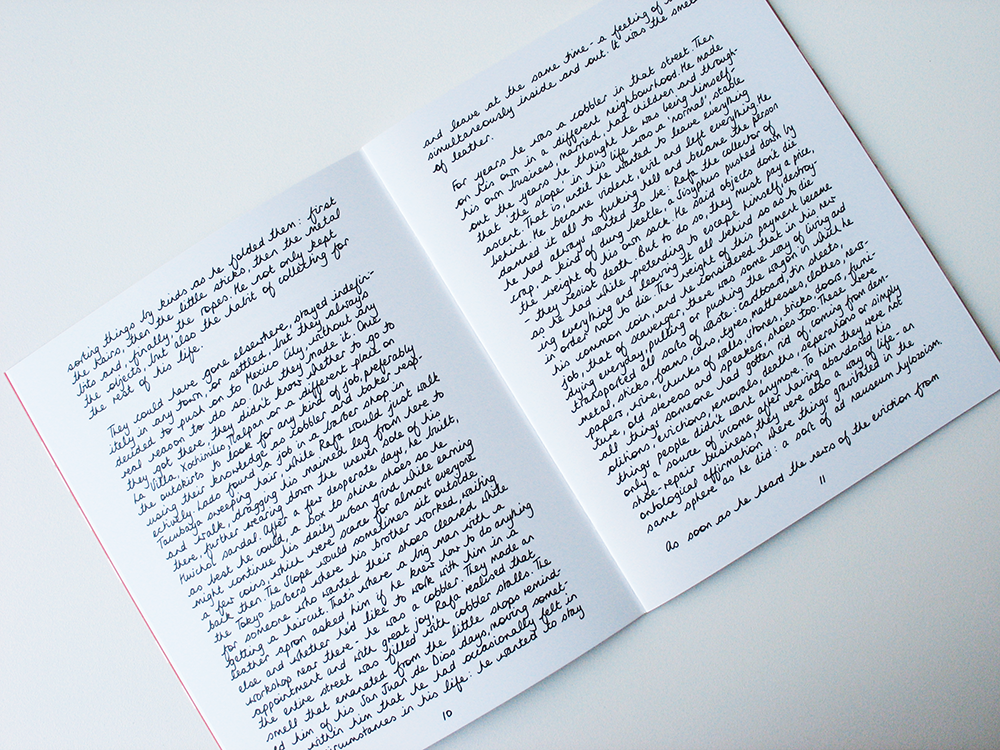 sorting things by kinds as he folded them: first
the bars, then the little sticks, then the metal
bits and, finally, the ropes. He not only kept
the objects, but also the habit of collecting for
the rest of his life.
They could have gone elsewhere, stayed indefin-
itely in any town, or settled, but they always
decided to push on to Mexico City without any
real reason to do so. And they made it. Once
they got there, they didn't know whether to go to
La Villa, Xochimilco, Tlalpan or a different place on
the outskirts to look for any kind of job, preferably
using their knowledge as cobbler and baker resp-
ectively. Lado found a job in a barber shop in
Tacubaya sweeping hair, while Rafa would just walk
and walk, dragging his maimed leg from here to
there, further wearing down the uneven sole of his
Huichol sandal. After a few desperate days, he built,
as best he could, a box to shine shoes so he
might continue his daily urban grind while earning
a few coins, which were scarce for almost everyone
back then. The Slope would sometimes sit outside
the Tokyo barbers where his brother worked, waiting
for someone who wanted their shoes cleaned while
getting a haircut. That's where a big man with a
leather apron asked him if he knew how to do anything
else and whether he'd like to work with him in a
workshop near there - he was a cobbler. They made an
appointment and with great joy, Rafa realised that
the entire street was filled with cobbler stalls. The
smell that emanated from the little shops remind-
ed him of his San Juan de Dios days, moving somet-
within him that he had occasionally felt in
circumstances in his life: he wanted to stay
10
and leave at the same time - a feeling of
simultaneously inside and out. It was the smell
of leather.
For years he was a cobbler in that street. Then
on his own in a different neighbourhood. He made
his own business, married, had children and through-
out the years he thought he was being himself -
that 'the slope' in his life was a 'normal', stable
ascent. That is, until he wanted to leave everything
behind. He became violent, evil and left everything. He
damned it all to fucking hell and became the person
he had always wanted to be: Rafa the collector of
crap, a kind of dung beetle, a Sisyphus pushed down by
the weight of his own sack. He said objects don't die
- they resist death. But to do so, they must pay a price,
as he had while pretending to escape himself, destroy-
ing everything and leaving it all behind so as to die
in order not to die. The weight of this payment became
his common coin, and he considered that in his new
job, that of scavenger, there was some way of living and
dying everyday, pulling or pushing the wagon in which he
transported all sorts of waste: cardboard, tin sheets,
metal, sticks, foam, cans, tyres, mattresses, clothes, news-
papers, wire, chunks of walls, stones, bricks, doors, furni-
ture, old stereos and speakers, and shoes too. These were
all things someone had gotten rid of, coming from dem-
olitions, evictions, removals, deaths, separations or simply
things people didn't want anymore. To him they were not
only a source of income after having abandoned his
shoe repair business, they were also a way of life - an
ontological affirmation where things gravitated in the
same sphere as he did: a sort of ad nauseum hylozoism.
As soon as he heard the news of the eviction from
11